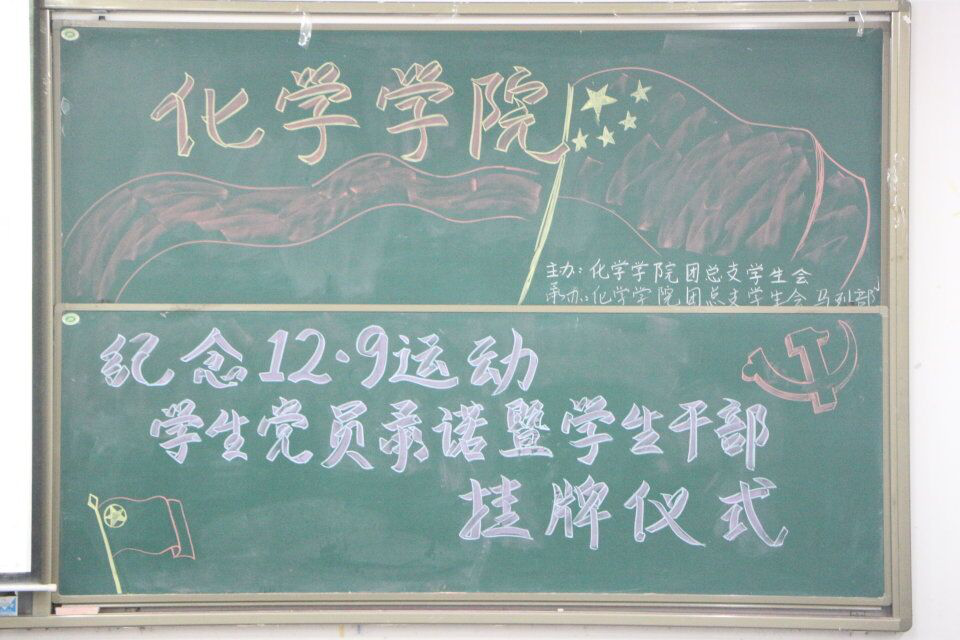 化学学院
主办：化学学院团总支学生会
承办：化学学院团总支学生会马列部
纪念12·9运动
学生党员承诺暨学生干部
挂牌仪式